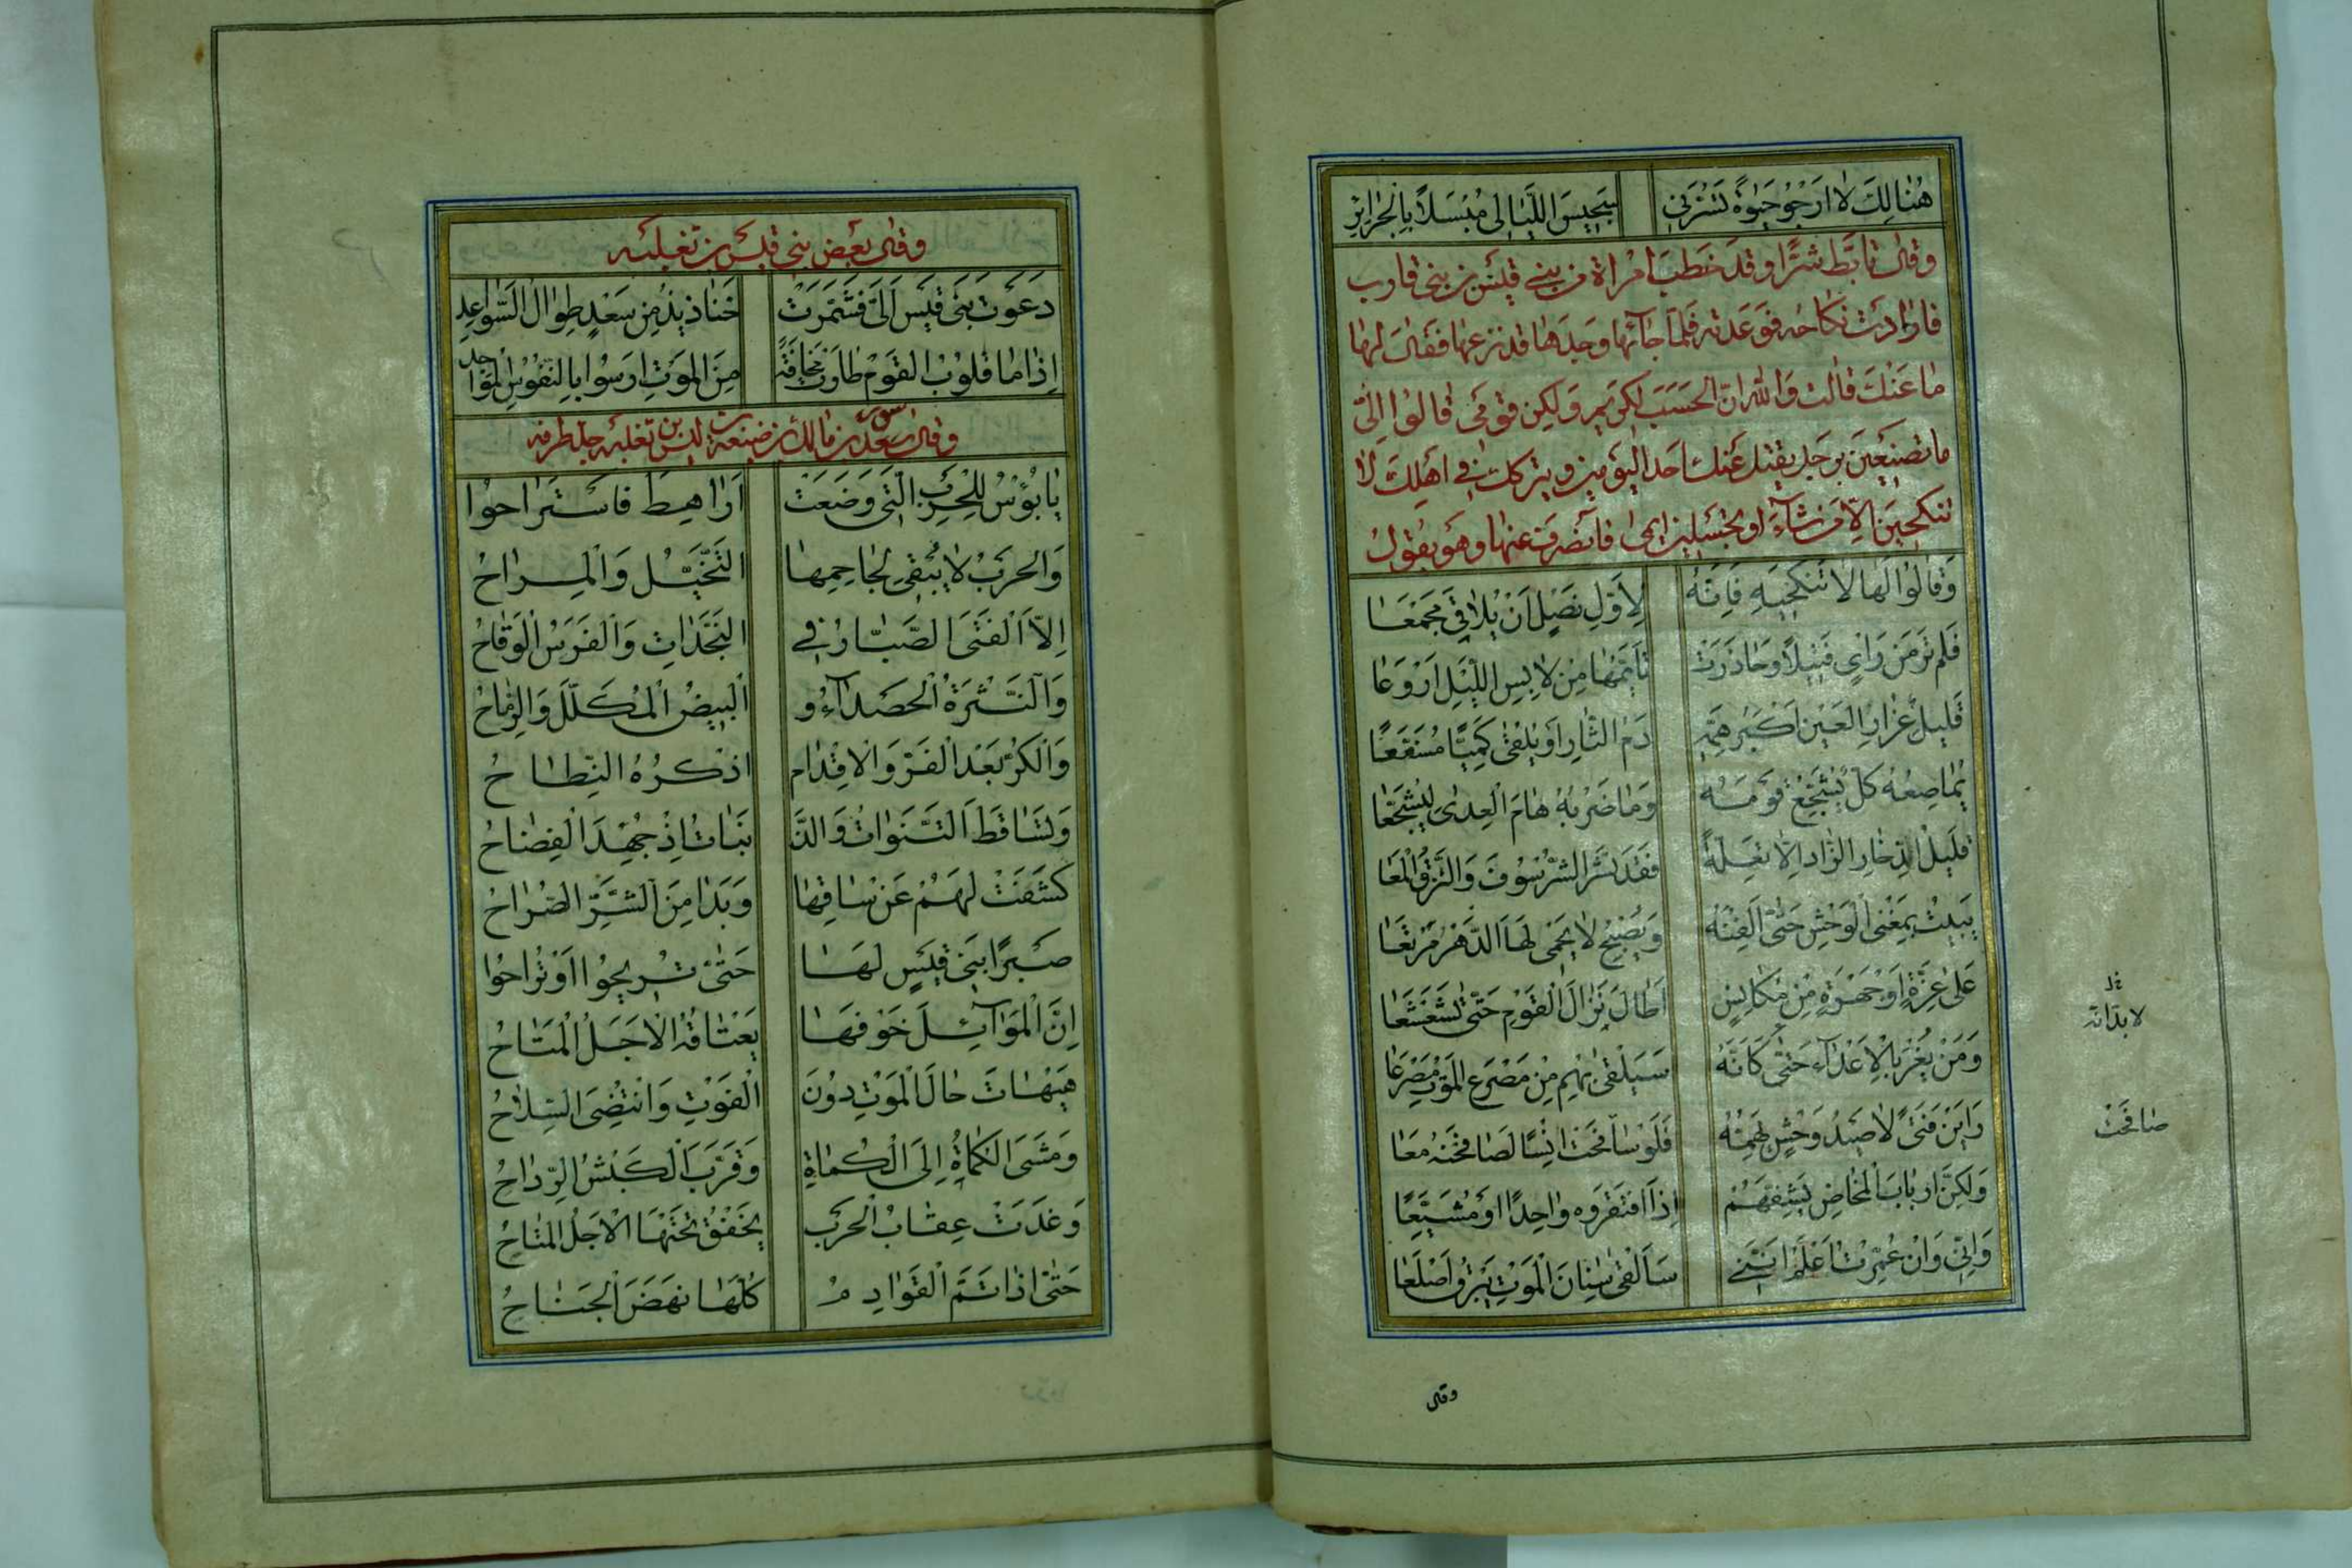 هُنَالِكَ لَا اَرْجُو حَيٰوةً تَسُرُّنِي سَجِيسَ اللَّيَالِي مُبْسَلًا بِالْجَرَائِرِ
وقال تابّط شرًّا وقد خطب امراة من بني قيس من بني قارب
فارادت نكاحه فوعدته فلما جائها وجدها قد نزعها فقال لها
ما عنك قالت والله ان الحسب لكريم ولكن قومي قالوا لي
ما تصنعين برجل يقتل عنك احد اليومين ويتركك في اهلك لا
وهو يقول
وَقَالُوا لَهَا لَا تَنْكِحِيهِ فَاِنَّهُ لِاَوَّلِ نَصْلٍ اَنْ يُلَاقِيَ مَجْمَعَا
فَلَمْ تَرَ مِنْ رَايٍ فَتِيلًا وَحَاذَرَتْ تَاَيُّمَهَا مِنْ لَابِسِ اللَّيْلِ اَرْوَعَا
قَلِيلُ غِرَارِ الْعَيْنِ اَكْبَرُ هَمِّهِ دَمُ الثَّارِ اَوْ يَلْقٰى كَمِيًّا مُسَفَّعًا
يُمَاصِعُهُ كُلٌّ يُشَجِّعُ قَوْمَهُ وَمَا ضَرْبُهُ هَامَ الْعِدٰى لِيُشَجَّعَا
قَلِيلُ ادِّخَارِ الزَّادِ اِلَّا تَعِلَّةً فَقَدْ نَشَزَ الشُّرْسُوفُ وَالْتَزَقَ الْمَعَا
يَبِيتُ بِمَغْنَى الْوَحْشِ حَتّٰى اَلِفْنَهُ وَيُصْبِحُ لَا يَحْمِي لَهَا الدَّهْرَ مَرْتَعَا
عَلٰى غِرَّةٍ اَوْ جَهْرَةٍ مِنْ مُكَانِسٍ اَطَالَ نِزَالَ الْقَوْمِ حَتّٰى تَسَعْسَعَا
وَمَنْ يُغْرَ بِالْاَعْدَاءِ حَتّٰى كَاَنَّهُ سَيَلْقٰى بِهِمْ مِنْ مَصْرَعِ الْمَوْتِ مَصْرَعَا
لا بد انه
رَاَيْنَ فَتًى لَا صَيْدُ وَحْشٍ يُهِمُّهُ فَلَوْ صَافَحَتْ اِنْسًا لَصَافَحْنَهُ مَعَا
صافحت
وَلٰكِنَّ اَرْبَابَ الْمَخَاضِ يَشِفُّهُمْ اِذَا افْتَقَرُوهُ وَاحِدًا اَوْ مُشَيَّعًا
وَاِنِّي وَاِنْ عُمِّرْتُ اَعْلَمُ اَنَّنِي سَاَلْقٰى سِنَانَ الْمَوْتِ يَبْرُقُ اَصْلَعَا
وقال
وقال بعض بني قيس بن ثعلبه
دَعَوْتُ بَنِي قَيْسٍ اِلَيَّ فَشَمَّرَتْ خَنَاذِيذُ مِنْ سَعْدٍ طِوَالُ السَّوَاعِدِ
اِذَا مَا قُلُوبُ الْقَوْمِ طَارَتْ مَخَافَةً مِنَ الْمَوْتِ ارْسَوْا بِالنُّفُوسِ الْمَوَاجِدِ
وقال سعد بن مالك بن ضبيعة بن قيس بن ثعلبة جد طرفه
يَا بُؤْسَ لِلْحَرْبِ الَّتِي وَضَعَتْ اَرَاهِطَ فَاسْتَرَاحُوا
وَالْحَرْبُ لَا يُبْقِي لِجَاحِمِهَا التَّخَيُّلُ وَالْمِرَاحُ
اِلَّا الْفَتَى الصَّبَّارُ فِي النَّجَدَاتِ وَالْفَرَسُ الْوَقَاحُ
وَالنَّثْرَةُ الْحَصْدَاءُ وَ الْبِيضُ الْمُكَلَّلُ وَالرِّمَاحُ
وَالْكَرُّ بَعْدَ الْفَرِّ وَالْاِقْدَامِ اذْ كُرِهَ النِّطَاحُ
وَتَسَاقَطَ التَّنْوَاتُ وَالذَّ نَبَاتُ اِذْ جُهِدَ الْفِضَاحُ
كَشَفَتْ لَهُمْ عَنْ سَاقِهَا وَبَدَا مِنَ الشَّرِّ الصُّرَاحُ
صَبْرًا بَنِي قَيْسٍ لَهَا حَتّٰى تُرِيحُوا اَوْ تُرَاحُوا
اِنَّ الْمَوَائِلَ خَوْفَهَا يَعْتَاقُهُ الْاَجَلُ الْمُتَاحُ
هَيْهَاتَ حَالَ الْمَوْتُ دُونَ الْفَوْتِ وَانْتُضِيَ السِّلَاحُ
وَمَشَى الْكُمَاةُ اِلَى الْكُمَاةِ وَقُرِّبَ الْكَبْشُ الرِّدَاحُ
وَغَدَتْ عِقَابُ الْحَرْبِ يَخْفُقُ تَحْتَهَا الْاَجَلُ الْمُتَاحُ
حَتّٰى اذَا تَمَّ الْقَوَادِمُ كُلُّهَا نَهَضَ الْجَنَاحُ